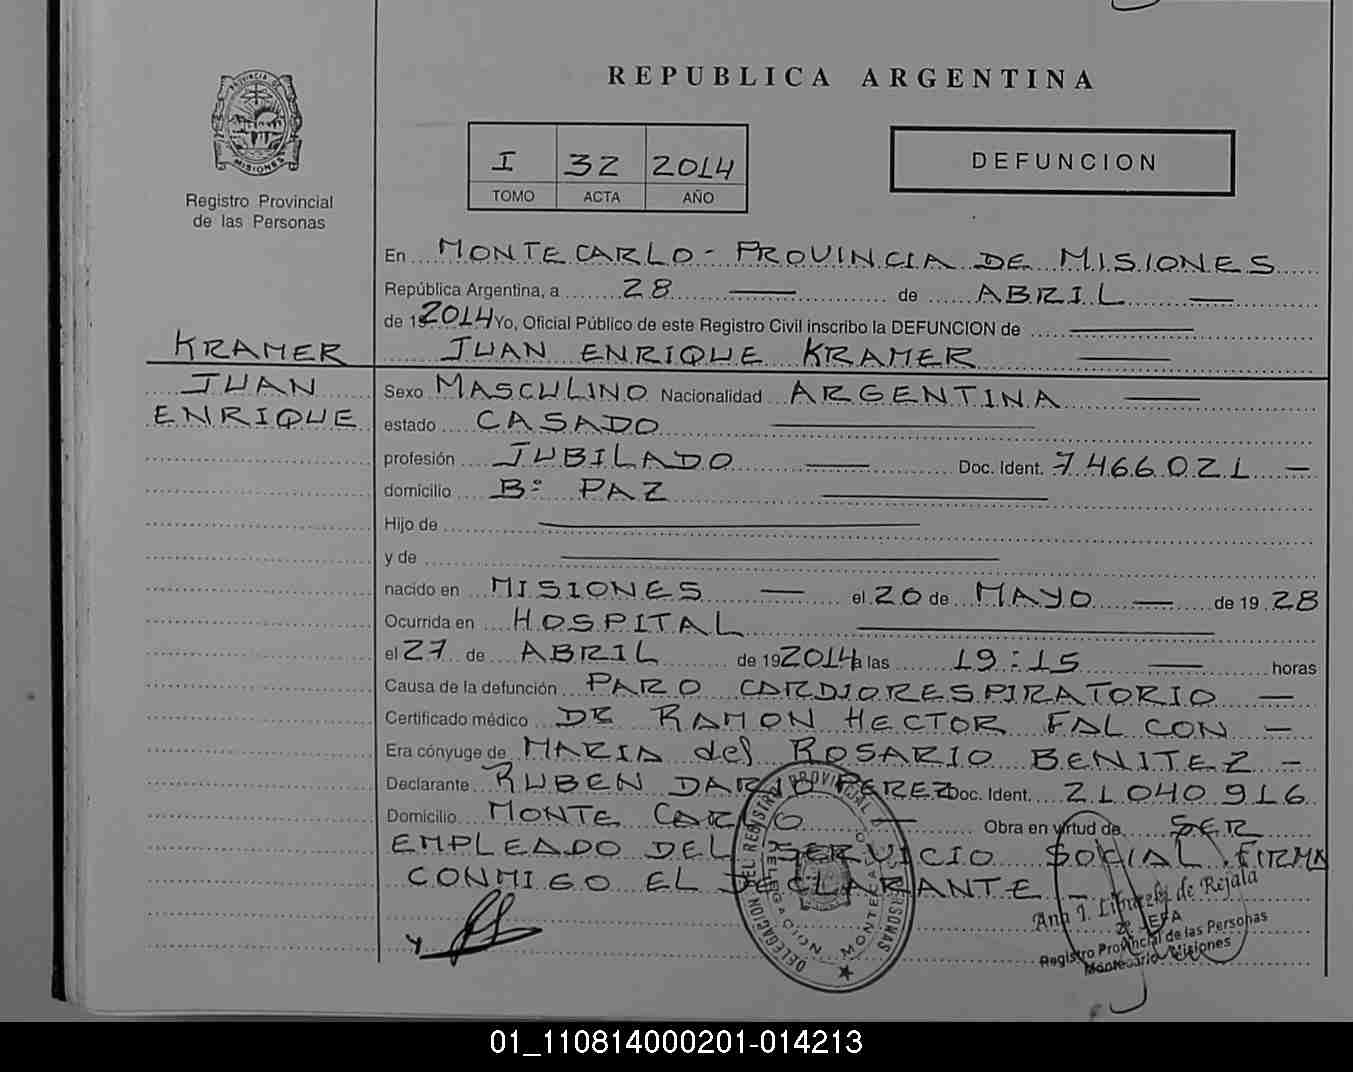 REPUBLICA ARGENTINA
PROVINCIA DE
MISIONES
Registro Provincial
de las Personas
I 32 2014
TOMO ACTA AÑO
DEFUNCION
En MONTECARLO - PROVINCIA DE MISIONES
República Argentina, a 28 — de ABRIL —
de 19 2014 Yo, Oficial Público de este Registro Civil inscribo la DEFUNCION de —
KRAMER
JUAN
ENRIQUE
JUAN ENRIQUE KRAMER —
Sexo MASCULINO Nacionalidad ARGENTINA —
estado CASADO —
profesión JUBILADO — Doc. Ident. 7466021 —
domicilio Bº PAZ —
Hijo de —
y de —
nacido en MISIONES — el 20 de MAYO — de 19 28
Ocurrida en HOSPITAL —
el 27 de ABRIL de 19 2014 a las 19:15 — horas
Causa de la defunción PARO CARDIORESPIRATORIO —
Certificado médico DR RAMON HECTOR FALCON —
Era cónyuge de MARIA del ROSARIO BENITEZ —
Declarante RUBEN DARIO PEREZ Doc. Ident. 21040916
Domicilio MONTE CARLO — Obra en virtud de SER
EMPLEADO DEL SERVICIO SOCIAL. FIRMA
CONMIGO EL DECLARANTE —
DELEGACION DEL REGISTRO PROVINCIAL PERSONAS
DELEGACION MONTECARLO
Ana I. de Rejala
2º JEFA
Registro Provincial de las Personas
Montecarlo Misiones
01_110814000201-014213